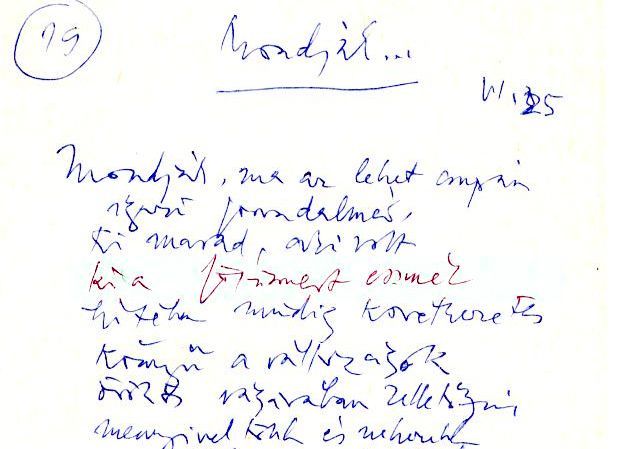 19
Mondják...
VI. 25
Mondják, ma az lehet csupán
igazi forradalmár,
ki marad, aki volt
ki a
hitében mindig következetes
Könnyű a változások
örökös vázában
mennyivel több és nehezebb